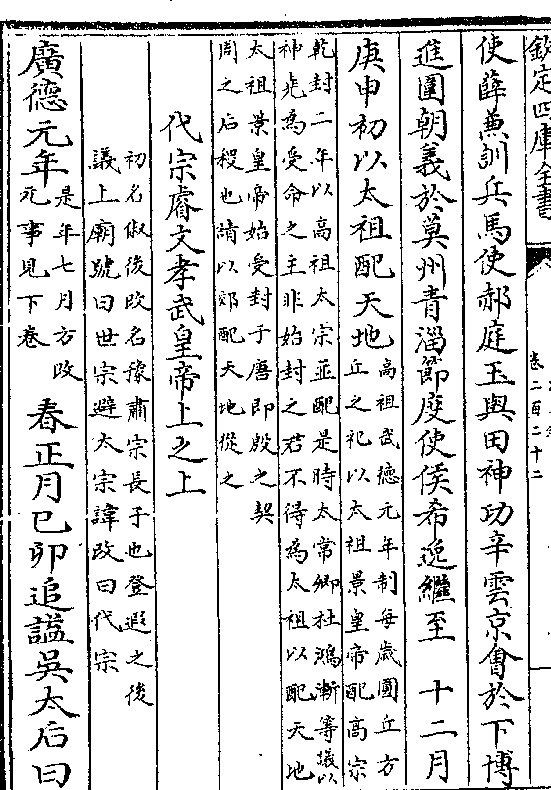 欽定四庫全書
卷二百二十二
使薛兼訓兵馬使郝庭玉與田神功辛雲京會於下博
進圍朝義於莫州青淄節度使侯希逸繼至　十二月
庚申初以太祖配天地高祖武德元年制每歲圜丘方
丘之祀以太祖景皇帝配高宗
乾封二年以高祖太宗並配是時太常卿杜鴻漸等議以
神堯為受命之主非始封之君不得為太祖以配天地
太祖景皇帝始受封于唐即殷之契
周之后稷也請以郊配天地從之
代宗睿文孝武皇帝上之上
初名俶後改名豫肅宗長子也登遐之後
議上廟號曰世宗避太宗諱改曰代宗
廣德元年是年七月方改
元事見下卷春正月己卯追謚吳太后曰